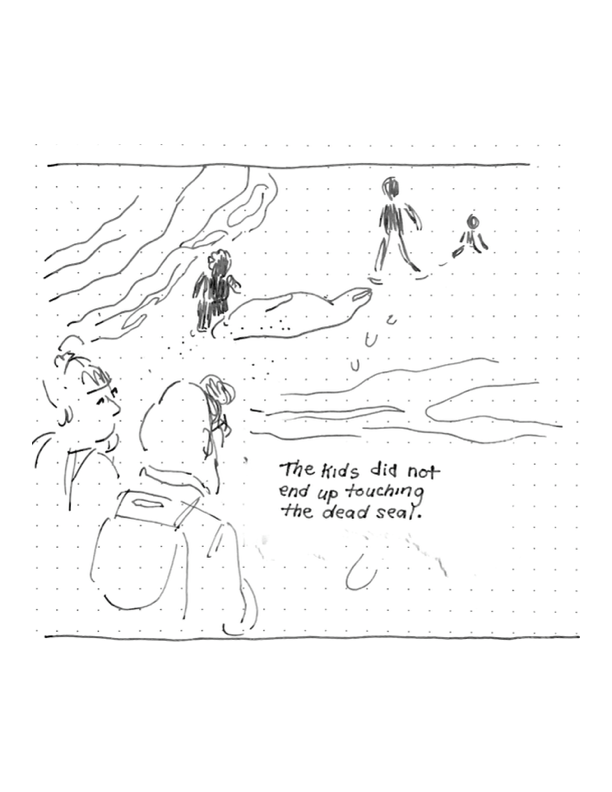 The kids did not
end up touching
the dead seal.